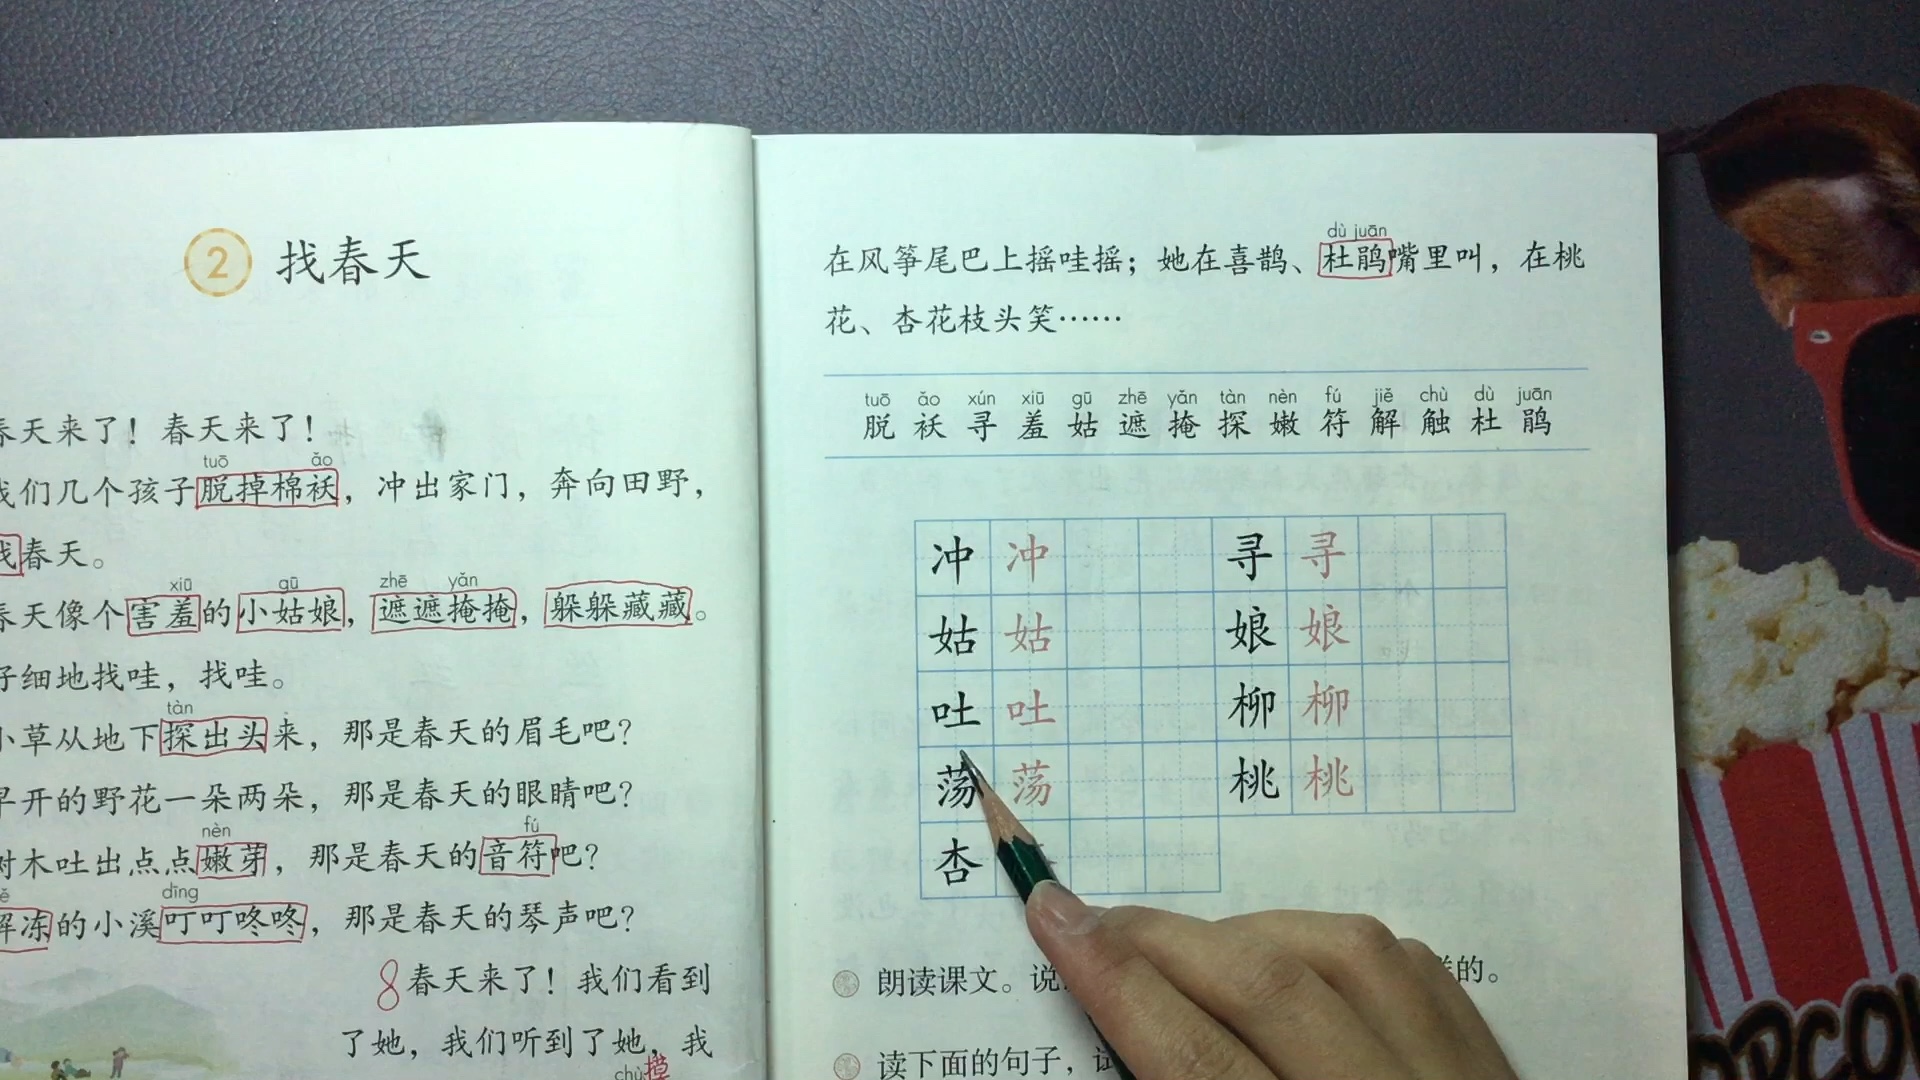 2 找春天
春天来了！春天来了！
tuō ǎo
我们几个孩子脱掉棉袄，冲出家门，奔向田野，
找春天。
xiū gū zhē yǎn
春天像个害羞的小姑娘，遮遮掩掩，躲躲藏藏。
仔细地找哇，找哇。
tàn
小草从地下探出头来，那是春天的眉毛吧？
早开的野花一朵两朵，那是春天的眼睛吧？
nèn fú
树木吐出点点嫩芽，那是春天的音符吧？
dīng
解冻的小溪叮叮咚咚，那是春天的琴声吧？
8 春天来了！我们看到
了她，我们听到了她，我
chù 摸
dù juān
在风筝尾巴上摇哇摇；她在喜鹊、杜鹃嘴里叫，在桃
花、杏花枝头笑……
tuō ǎo xún xiū gū zhē yǎn tàn nèn fú jiě chù dù juān
脱 袄 寻 羞 姑 遮 掩 探 嫩 符 解 触 杜 鹃
冲 冲 寻 寻
姑 姑 娘 娘
吐 吐 柳 柳
荡 荡 桃 桃
杏
朗读课文。说 的。
读下面的句子，试